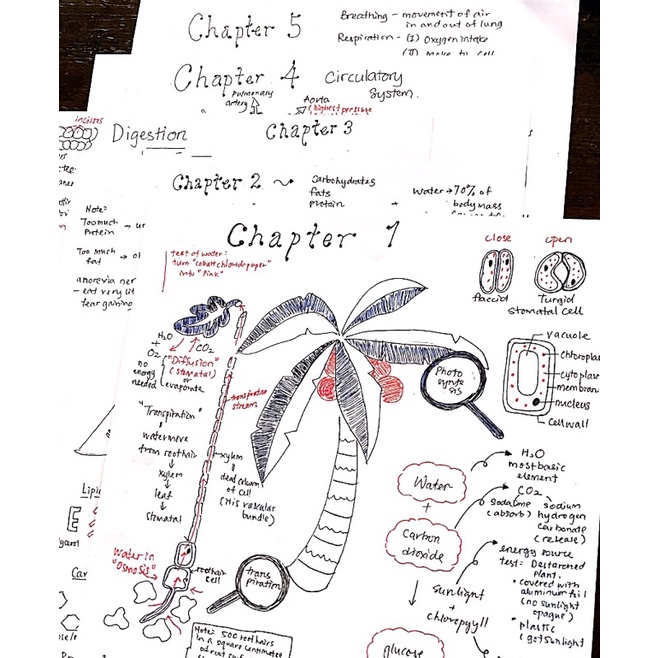 Chapter 5
Breathing - movement of air
in and out of lung
Respiration - (I) Oxygen intake
Chapter 4
Circulatory
System.
pulmonary
artery
Aorta
(highest pressure
incisors
Digestion
Chapter 3
Chapter 2
carbohydrates
fats
protein
Water → 70% of
body mass
Note:
Too much
protein →
Too much
fat →
anorexia ner
- eat very lit
fear gaining
Chapter 1
test of water:
turn "cobalt chloride paper"
into "pink"
close
open
flaccid
Turgid
stomatal cell
H₂O
+
O₂
CO₂
"Diffusion"
(stomatal)
or
evaporate
no
energy
needed
transpiration
stream
Photo
synthe
sis
vacuole
chloroplas
cytoplasm
membran
nucleus
cell wall
"Transpiration"
water move
from root hair
↓
xylem
↓
leaf
↓
stomatal
xylem
=
dead column
of cell
(this vascular
bundle)
Water
+
Carbon
dioxide
H₂O
most basic
element
CO₂
sodalime
(absorb)
sodium
hydrogen
carbonate
(release)
energy source
test: Destarched
plant.
• covered with
aluminum foil
(no sunlight
opaque)
• plastic
(got sunlight
sunlight
+
chlorophyll
glucose
Lipid
E
glycerol
Car
Water in
"Osmosis"
root hair
cell
trans
piration
Note: 500 root hairs
in a square centimeter
of root surf